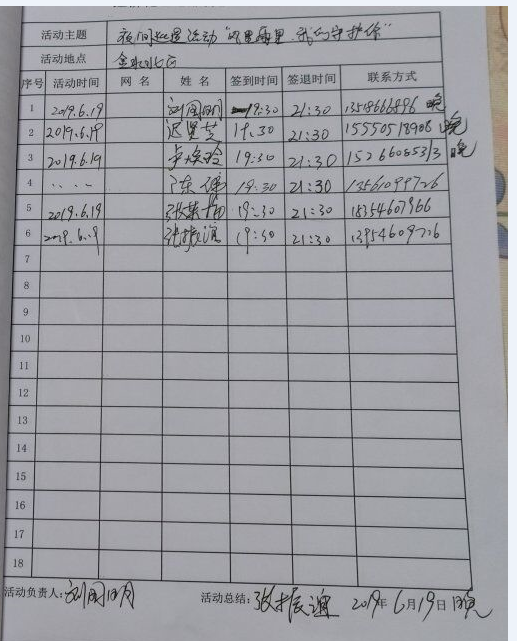 活动主题 夜间巡逻活动"
活动地点 金水北区
序号 活动时间 网 名 姓 名 签到时间 签退时间 联系方式
1 2019.6.19 刘国明 19:30 21:30 晚
2 2019.6.19 19.30 21:30 15550518906 晚
3 2019.6.19 19:30 21:30 晚
4 陈伟 19:30 21:30 13561099726
5 2019.6.19 19:30 21:30 18354607966
6 2019.6.19 张振谊 19:30 21:30 13954609726
7
8
9
10
11
12
13
14
15
16
17
18
活动负责人:刘国明 活动总结:张振谊 2019年6月19日晚